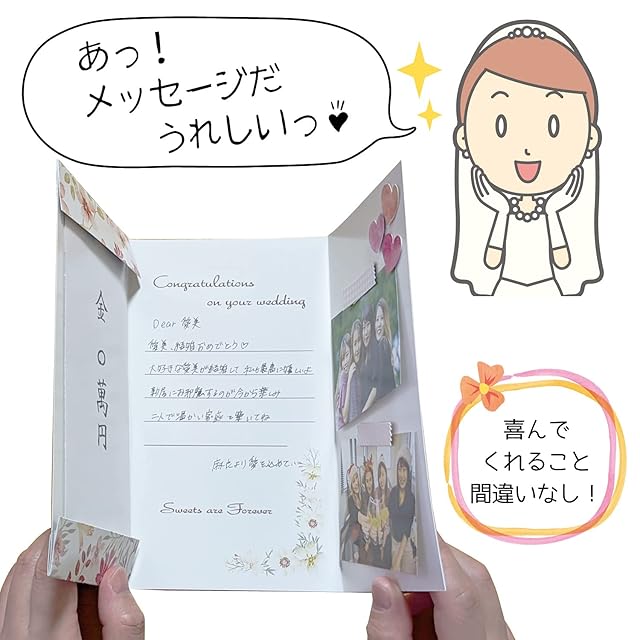 あっ！
メッセージだ
うれしいっ
金〇萬円
Congratulations
on your wedding
Dear 愛美
愛美、結婚おめでとう♡
大好きな愛美が結婚して私も最高に嬉しいよ
新居にお邪魔するのが今から楽しみ
二人で温かい家庭を築いてね
麻衣より愛を込めて
Sweets are Forever
喜んで
くれること
間違いなし！